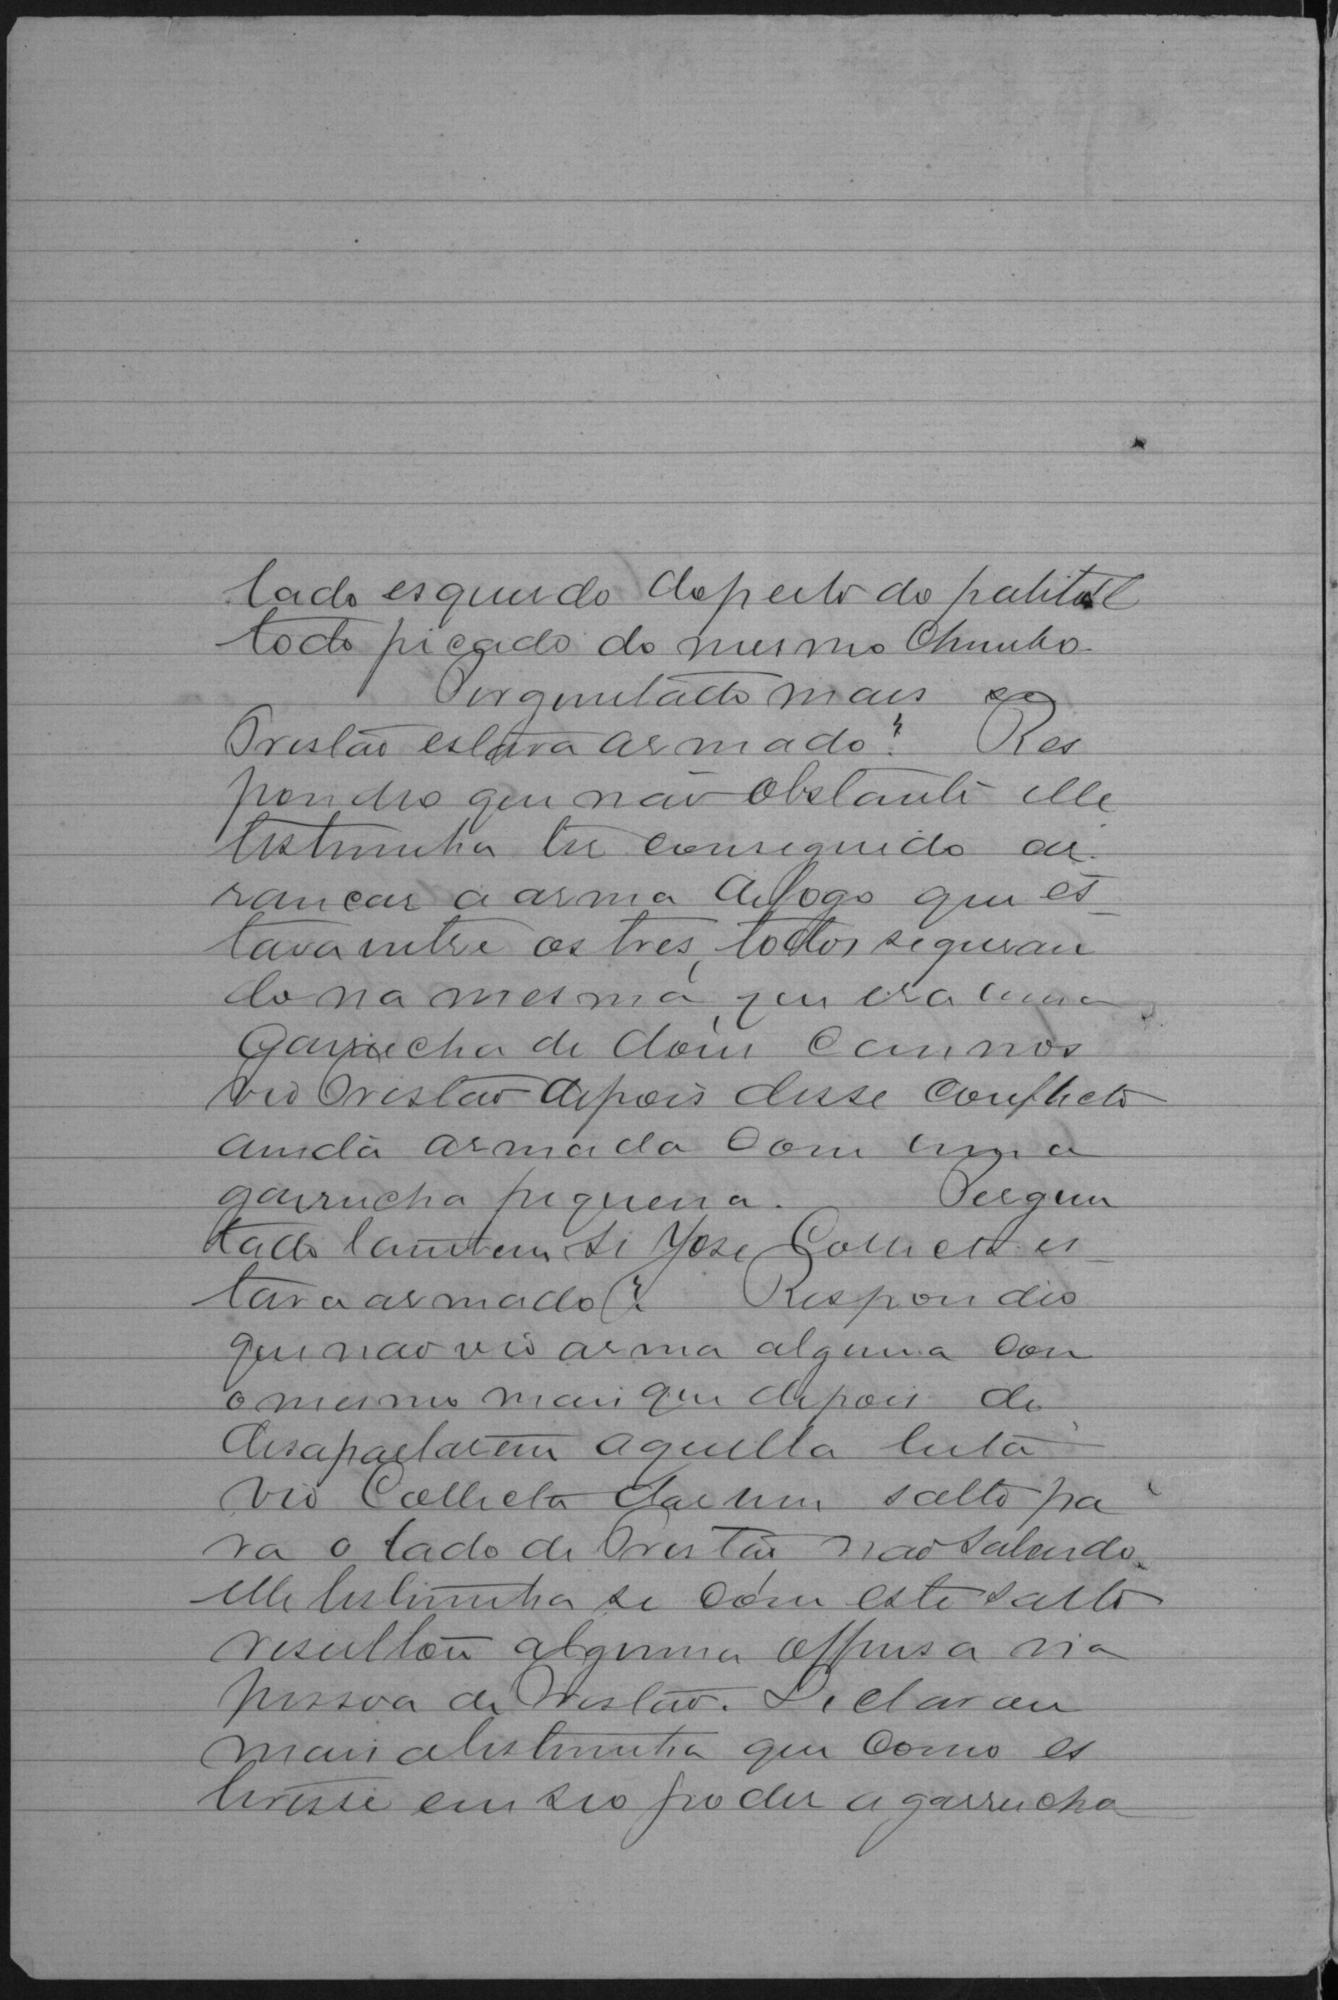 lado esquerdo do peito do palitot
todo picado do mesmo chumbo.
Perguntado mais se
Tristão estava armado? Res
pondeo que não obstante elle
testimunha ter conseguido ar-
rancar a arma de fogo que es-
tava entre os tres, todos seguran
do na mesma, que era uma
garrucha de dous cannos
vio Tristão depois desse conflicto
ainda armado com uma
garrucha pequena. Pergun
tado tambem si José Collecta es-
tava armado? Respondeo
que não vio arma alguma com
o mesmo mais que depois de
desapartarem aquella luta
vio Collecta dar um salto pa
ra o lado de Tristão não sabendo
elle testimunha se com este salto
resultou alguma offensa na
pessoa de Tristão. Declarou
mais a testimunha que como es
tivesse em seo poder a garrucha